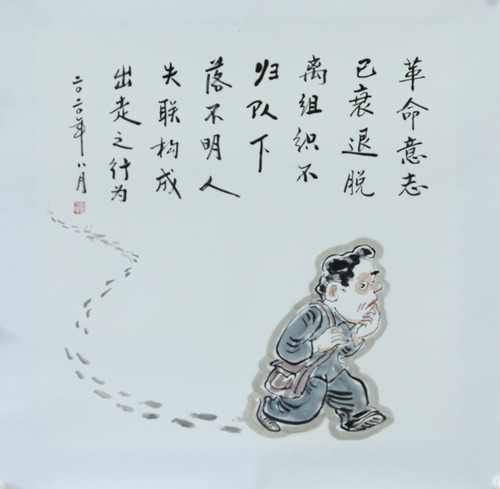 革命意志
已衰退脱
离组织不
归队下
落不明人
失联构成
出走之行为
二〇二〇年八月